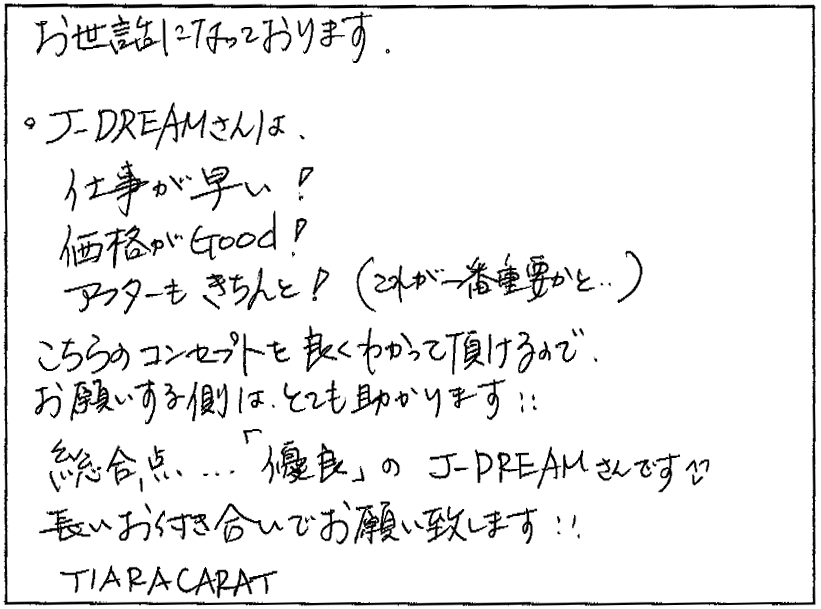 お世話になっております.
・J-DREAMさんは、
仕事が早い!
価格がGood!
アフターもきちんと!(これが一番重要かと..)
こちらのコンセプトを良くわかって頂けるので、
お願いする側は、とても助かります!!
総合点...「優良」のJ-DREAMさんです
長いお付き合いでお願い致します!!
TIARACARAT